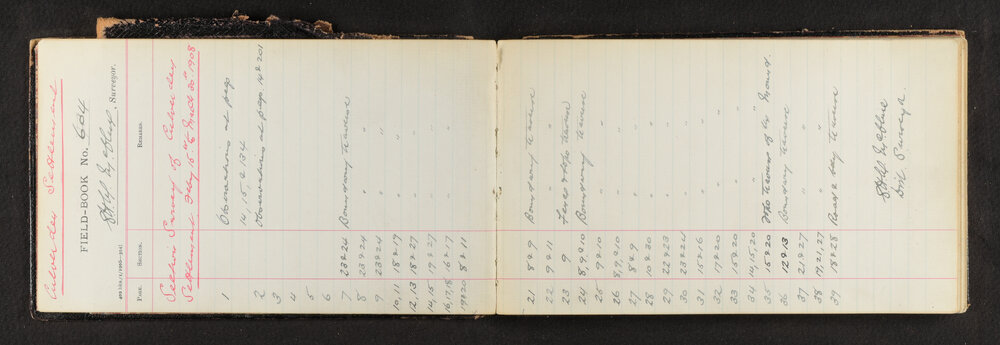 Culverden Settlement
FIELD-BOOK No. 604
, Surveyor.
400 bks./1/1905—314]
PAGE. SECTION. REMARKS.
Section Survey of Culverden
Settlement
1 Observations at page
14, 15, 21 34
2 Observations at page 14 & 20
3
4
5
6
7 23 & 24 Boundary traverse
8 23 & 24 "
9 23 & 24 "
10, 11 18 & 19 "
12, 13 18 & 27 "
14, 15 19 & 27 "
16, 17, 18 16 & 17 "
19 & 20 8 & 11 "
21 8 & 9 Boundary traverse
22 9 & 11 "
23 9 Fence & topo traverse
24 8, 9, & 10 Boundary traverse
25 9 & 10 "
26 8, 9, & 10 "
27 8 & 9 "
28 10 & 30 "
29 22 & 23 "
30 23 & 24 "
31 15 & 16 "
32 17 & 20 "
33 15 & 20 "
34 14, 15, 20 "
35 15 & 20
36 12 & 13 Boundary traverse
37 21 & 27 "
38 19, 21, 27 "
39 18 & 28 Road & bdy traverse
Dist Surveyor